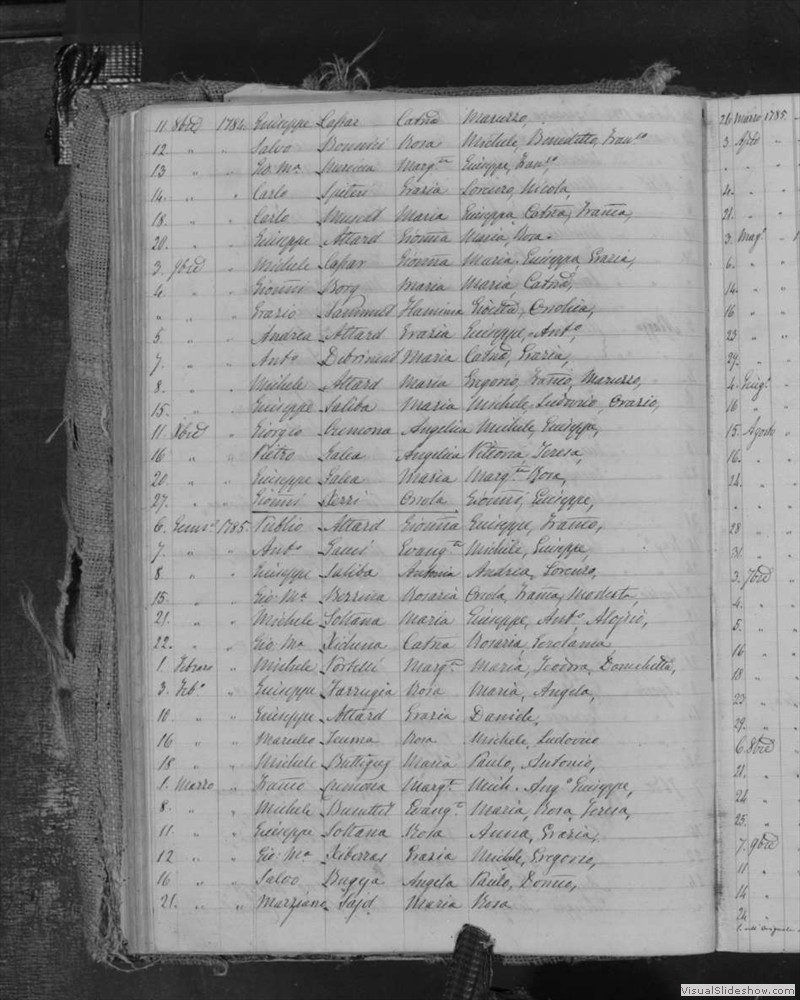 11. 8bre 1784. Giuseppe Caşar Catna Maruzzo,
12. " " Salvo Bonnici Rosa Michele, Benedetto, Franco
13 " " Gio Ma Mercieca Margta Giuseppe, Franco,
14. " " Carlo Spiteri Grazia Lorenzo, Nicola,
18. " " Carlo Muscat Maria Giuseppa, Catna, Franca,
20. " " Giuseppe Attard Gionna Maria, Rosa.
3. 9bre " Michele Caşar Gionna Maria, Giuseppa, Grazia,
4. " " Gionni Borg Maria Maria, Catna,
" " " Grazio Sammut Flaminia Onolica,
5. " " Andrea Attard Grazia Giuseppe, Anto,
7. " " Anto Debrincat Maria Catna, Grazia,
8. " " Michele Attard Maria Gregorio, Franco, Maruzzo,
15. " " Giuseppe Saliba Maria Michele, Ludovico, Orazio,
11. Xbre " Giorgio Cremona Angelica Michele, Giuseppe,
16 " " Pietro Galea Angelica Vittoria, Teresa,
20 " " Giuseppe Galea Maria Margta Rosa,
27. " " Gionni Xerri Onola Gionni, Giuseppe,
6. Genno 1785. Publio Attard Gionna Giuseppe, Franco,
7. " " Anto Gauci Evangta Michele, Giuseppe,
8. " " Giuseppe Saliba Antonia Andrea, Lorenzo,
15. " " Gio Ma Rosaria Onola, Franca, Modesta,
21. " " Michele Soltana Maria Giuseppe, Anto Aloisio,
22. " " Gio Ma Catna Rosaria, Gerolama,
1. Febraro " Michele Portelli Margta Maria, Teodora,
3. Febo " Giuseppe Farrugia Rosa Maria, Angela,
10. " " Giuseppe Attard Grazia Daniele,
16 " " Rosa Michele, Ludovico
18 " " Michele Buttigieg Maria Paulo, Antonio,
1. Marzo " Franco Cremona Margta Mich. Ango Giuseppe,
8. " " Michele Evangta Maria, Rosa, Teresa,
11. " " Giuseppe Soltana Rosa Anna, Grazia,
12 " " Gio Ma Xiberras Grazia Michele, Gregorio,
16 " " Salvo Bugeja Angela Paulo, Domco,
21. " " Marziano Sajd Maria Rosa
24 Marzo 1785.
3. Aple "
4. "
21. "
3. Mago "
6. "
14. "
16 "
23 "
29. "
4. Giugo "
16 "
15. Agosto "
16. "
24. "
28 "
31. "
3. 7bre
4. "
5. "
16 "
18 "
23 "
29. "
6. 8bre
21. "
24 "
25. "
7. 9bre
11 "
14 "
24 "
VisualSlideshow.com